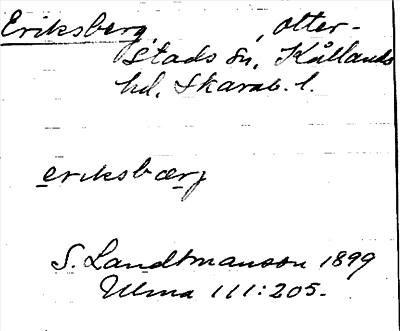 Eriksberg, Otter-
stads sn, Kållands
hd, Skarab. l.
eriksbærj
S. Landtmanson 1899
Ulma 111:205.